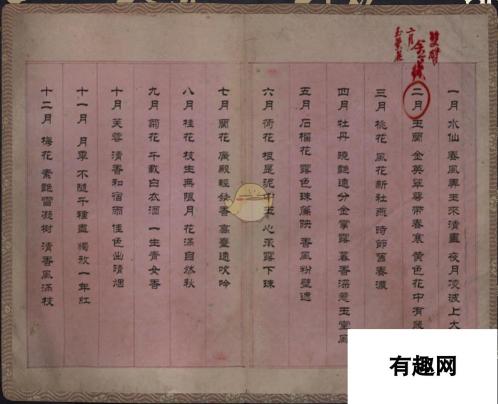 一月 水仙 春風弄玉來清晝 夜月凌波上大
二月 玉蘭 金英翠萼帶春寒 黃色花中有
三月 桃花 風花新社燕 時節舊春濃
四月 牡丹 曉艷遠分金掌露 暮香深惹玉堂風
五月 石榴花 露色珠簾映 香風粉壁遮
六月 荷花 根是泥中玉 心承露下珠
七月 蘭花 廣殿輕發香 高臺遠吹吟
八月 桂花 枝生無限月 花滿自然秋
九月 菊花 千載白衣酒 一生青女香
十月 芙蓉 清香和宿雨 佳色出晴烟
十一月 月季 不隨千種盡 獨放一年紅
十二月 梅花 素艷雪凝樹 清香風滿枝
六月
有趣网